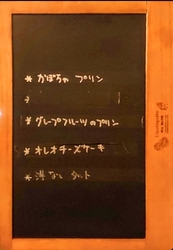 * かぼちゃ プリン
* グレープフルーツのプリン
* オレオチーズケーキ
* 洋なし タルト